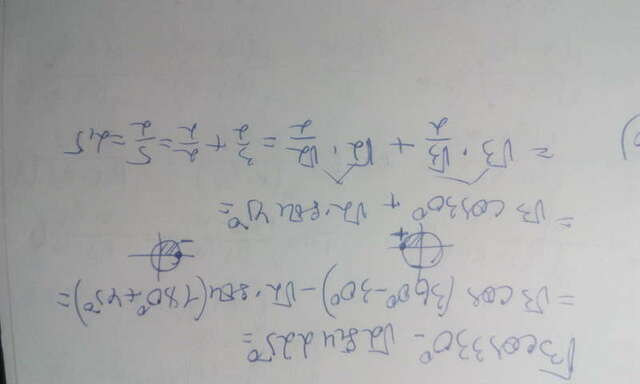 √3cos330° - √2sin225° =
= √3 cos(360° - 30°) - √2 · sin(180° + 45°) =
+ -
= √3 cos30° + √2 · sin45° =
= √3 · √3/2 + √2 · √2/2 = 3/2 + 2/2 = 5/2 = 2,5